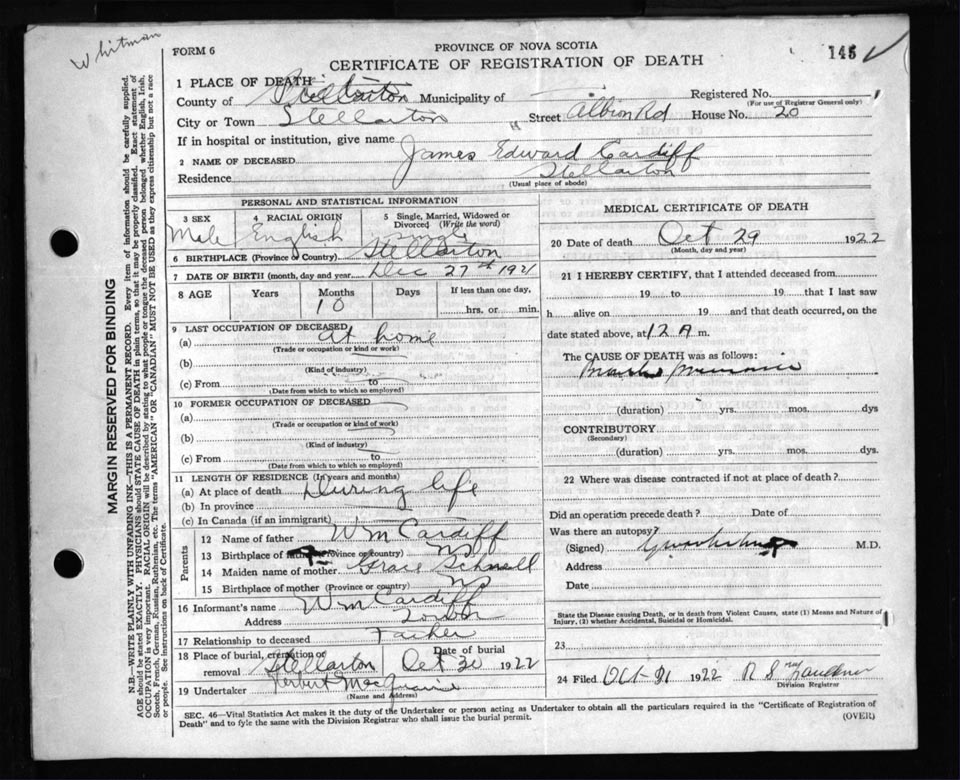 Whitman
FORM 6
PROVINCE OF NOVA SCOTIA
CERTIFICATE OF REGISTRATION OF DEATH
145
1 PLACE OF DEATH
County of Municipality of Registered No.
(For use of Registrar General only)
City or Town Stellarton Street Albion Rd House No. 20
If in hospital or institution, give name
2 NAME OF DECEASED James Edward Cardiff
Residence Stellarton
(Usual place of abode)
PERSONAL AND STATISTICAL INFORMATION
3 SEX Male
4 RACIAL ORIGIN English
5 Single, Married, Widowed or Divorced (Write the word)
6 BIRTHPLACE (Province or Country) Stellarton
7 DATE OF BIRTH (month, day and year) Dec 27th 1921
8 AGE Years Months Days If less than one day,
10 hrs. or min.
9 LAST OCCUPATION OF DECEASED
(a) At home
(Trade or occupation or kind or work)
(b)
(Kind of industry)
(c) From to
(Date from which to which so employed)
10 FORMER OCCUPATION OF DECEASED
(a)
(Trade or occupation or kind of work)
(b)
(Kind of industry)
(c) From to
(Date from which to which so employed)
11 LENGTH OF RESIDENCE (In years and months)
(a) At place of death During life
(b) In province
(c) In Canada (if an immigrant)
Parents
12 Name of father Wm Cardiff
13 Birthplace of father (Province or country) NS
14 Maiden name of mother Grace Schnell
15 Birthplace of mother (Province or country) NS
16 Informant's name Wm Cardiff
Address
17 Relationship to deceased Father
18 Place of burial, cremation or removal Stellarton Date of burial Oct 30 1922
19 Undertaker Herbert
(Name and Address)
MEDICAL CERTIFICATE OF DEATH
20 Date of death Oct 29 1922
(Month, day and year)
21 I HEREBY CERTIFY, that I attended deceased from
19 to 19 that I last saw
h alive on 19 and that death occurred, on the
date stated above, at 12 A m.
The CAUSE OF DEATH was as follows:
(duration) yrs. mos. dys
CONTRIBUTORY
(Secondary)
(duration) yrs. mos. dys.
22 Where was disease contracted if not at place of death?
Did an operation precede death? Date of
Was there an autopsy?
(Signed) M.D.
Address
Date
State the Disease causing Death, or in death from Violent Causes, state (1) Means and Nature of
Injury, (2) whether Accidental, Suicidal or Homicidal.
23
24 Filed Oct 31 1922 R S
Division Registrar
SEC. 46—Vital Statistics Act makes it the duty of the Undertaker or person acting as Undertaker to obtain all the particulars required in the "Certificate of Registration of
Death" and to fyle the same with the Division Registrar who shall issue the burial permit.
(OVER)
MARGIN RESERVED FOR BINDING
N.B—WRITE PLAINLY WITH UNFADING INK—THIS IS A PERMANENT RECORD. Every item of information should be carefully supplied.
AGE should be stated EXACTLY. PHYSICIANS should STATE CAUSE OF DEATH in plain terms, so that it may be properly classified. Exact statement of
OCCUPATION is very important. RACIAL ORIGIN will be described by stating to what people or tongue the deceased person belonged whether English, Irish,
Scotch, French, German, Russian, Ruthenian, etc. The terms "AMERICAN" OR "CANADIAN" MUST NOT BE USED as they express citizenship but not a race
or people. See instructions on back of Certificate.